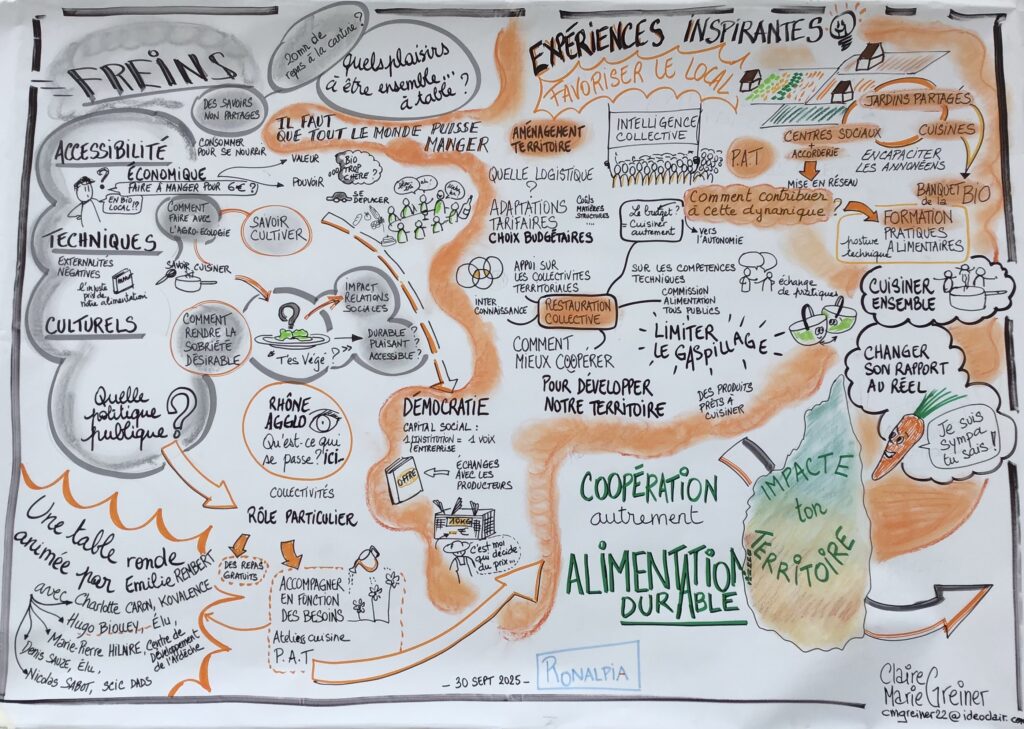 FREINS
20mn de
repas à la cantine ?
Quels plaisirs
à être ensemble...
à table ?
DES SAVOIRS
NON PARTAGÉS
IL FAUT
QUE TOUT LE MONDE PUISSE
MANGER
ACCESSIBILITÉ
CONSOMMER
POUR SE NOURRIR
ÉCONOMIQUE
FAIRE À MANGER POUR 6€ ?
VALEUR
POUVOIR
BIO
TROP
CHÈRE ?
SE
DÉPLACER
EN BIO
LOCAL !?
COMMENT
FAIRE AVEC
L'AGRO-ÉCOLOGIE
SAVOIR
CULTIVER
TECHNIQUES
EXTERNALITÉS
NÉGATIVES
L'injuste
prix de
notre alimentation
SAVOIR CUISINER
CULTURELS
COMMENT
RENDRE LA
SOBRIÉTÉ
DÉSIRABLE
?
"T'es Végé ?"
IMPACT
RELATIONS
SOCIALES
DURABLE ?
PLAISANT ?
ACCESSIBLE ?
Quelle
politique
publique ?
RHÔNE
AGGLO
Qu'est-ce qui
se passe ? ici.
COLLECTIVITÉS
RÔLE PARTICULIER
DES REPAS
GRATUITS
ACCOMPAGNER
EN FONCTION
DES BESOINS
Ateliers cuisine
P.A.T
Une table ronde
animée par Emilie REMBERT
avec Charlotte CARON, KOVALENCE
Hugo BIOLLEY, Élu,
Marie-Pierre HILAIRE, Centre de
Développement
de l'Ardèche
Denis SAUZE, Élu,
Nicolas SABOT, scic DADS
DÉMOCRATIE
CAPITAL SOCIAL :
1 INSTITUTION = 1 VOIX
/ENTREPRISE
OFFRE
ÉCHANGES
AVEC LES
PRODUCTEURS
10KG
C'est moi
qui décide
du prix...
EXPÉRIENCES INSPIRANTES
FAVORISER LE LOCAL
AMÉNAGEMENT
TERRITOIRE
INTELLIGENCE
COLLECTIVE
P.A.T
JARDINS PARTAGÉS
CENTRES SOCIAUX
+
ACCORDERIE
CUISINES
ENCAPACITER
LES ANNONÉENS
MISE EN RÉSEAU
BANQUET
de la BIO
QUELLE LOGISTIQUE
?
ADAPTATIONS
TARIFAIRES
CHOIX BUDGÉTAIRES
Coûts
MATIÈRES
STRUCTURES
....
Le budget ?
= Cuisiner
autrement
VERS
L'AUTONOMIE
Comment contribuer
à cette dynamique ?
posture
technique
FORMATION
PRATIQUES
ALIMENTAIRES
INTER
CONNAISSANCE
APPUI SUR
LES COLLECTIVITÉS
TERRITORIALES
RESTAURATION
COLLECTIVE
SUR LES COMPETENCES
TECHNIQUES
COMMISSION
ALIMENTATION
TOUS PUBLICS
échange
de pratiques
CUISINER
ENSEMBLE
LIMITER
LE GASPILLAGE
COMMENT
MIEUX COOPÉRER
POUR DÉVELOPPER
NOTRE TERRITOIRE
DES PRODUITS
PRÊTS À
CUISINER
CHANGER
SON RAPPORT
AU RÉEL
Je suis
sympa
tu sais !
COOPÉRATION
autrement
ALIMENTATION
DURABLE
IMPACTE
ton
TERRITOIRE
- 30 SEPT 2025 -
RONALPIA
Claire
Marie Greiner
cmgreiner22@ideoclair.com